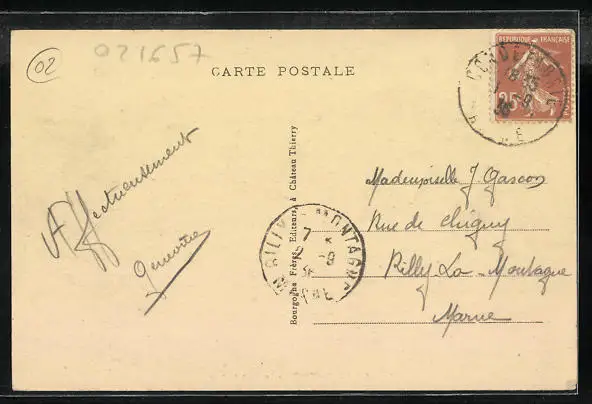 02
021657
CARTE POSTALE
REPUBLIQUE FRANÇAISE
25
Affectueusement
Bourgogne Frères, Editeurs à Château Thierry
RILLY MONTAGNE
7
Mademoiselle J. Gascon
Rue de Chigny
Rilly-La-Montagne
Marne